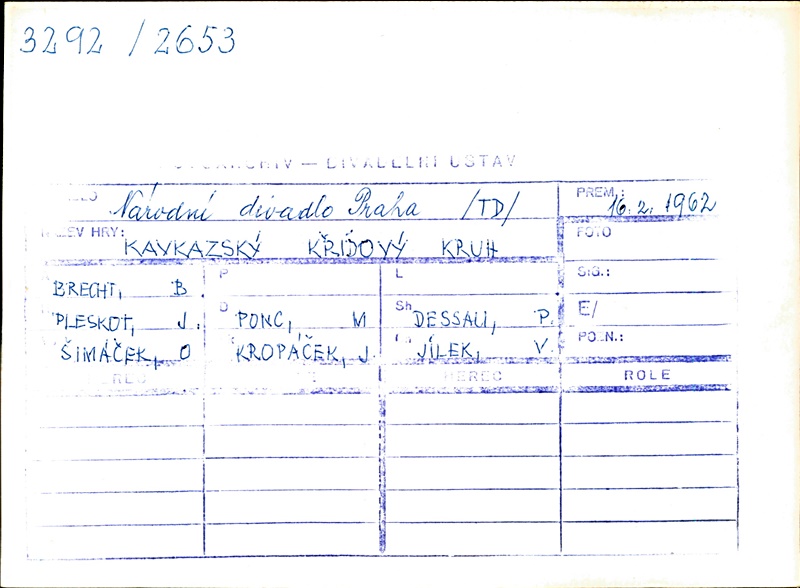 3292 / 2653
DIVADELNÍ ÚSTAV
Národní divadlo Praha /TD/ PREM.: 16. 2. 1962
HRY: KAVKAZSKÝ KŘÍDOVÝ KRUH FOTO
BRECHT, B. P L SIG.:
PLESKOT, J. O PONC, M Sh DESSAU, P. E/
ŠIMÁČEK, O KROPÁČEK, J. JÍLEK, V.
HEREC ROLE